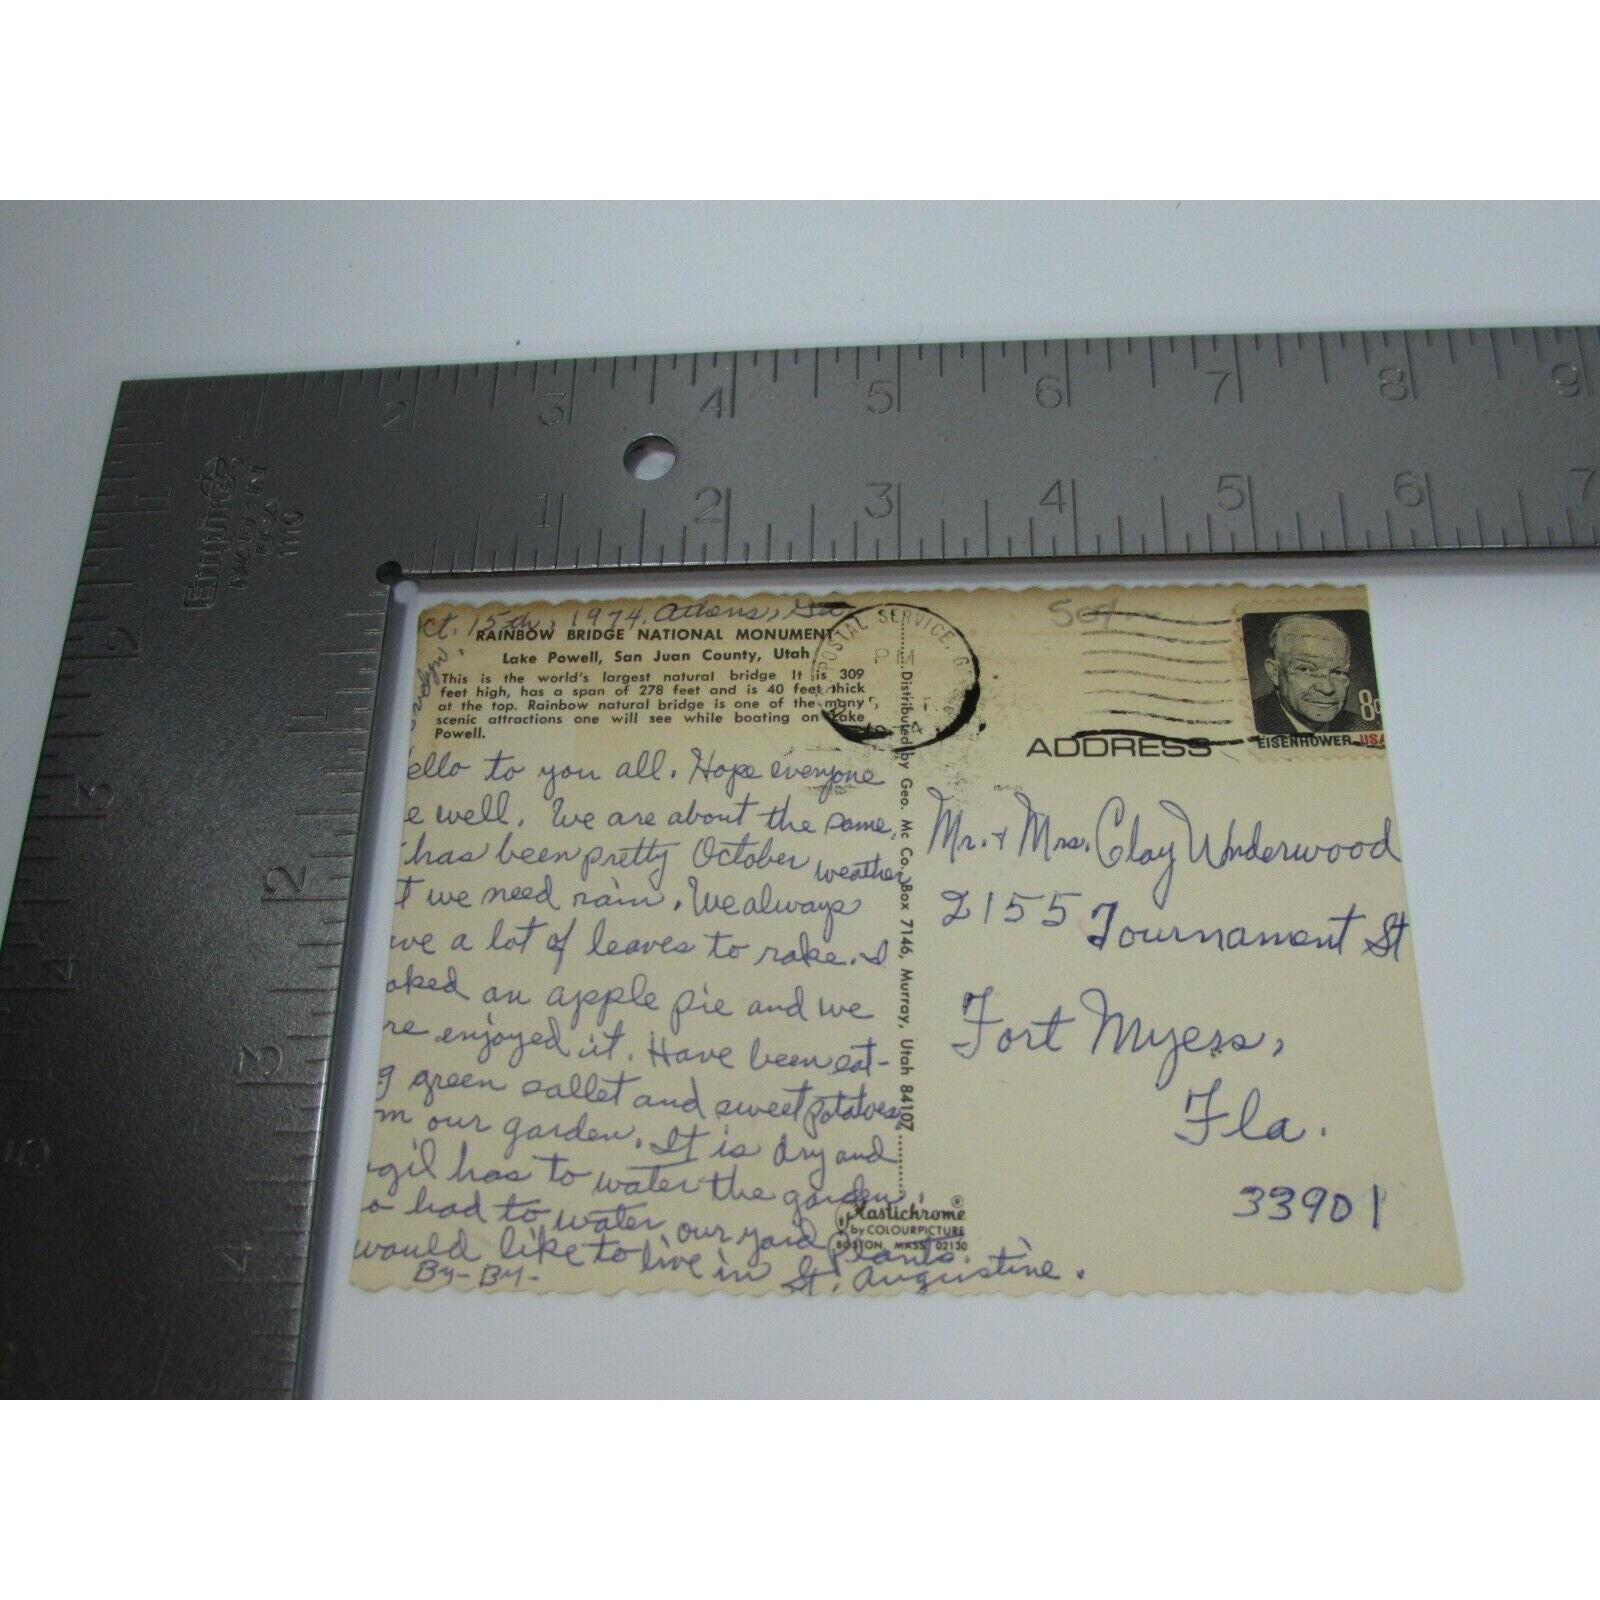 1 2 3 4 5 6 7 8 9
1 2 3 4 5 6 7
Empire
MADE IN
U.S.A.
1110
1 2 3 4 5
1 2 3 4
ct. 15th, 1974. Athens, Ga
RAINBOW BRIDGE NATIONAL MONUMENT
Lake Powell, San Juan County, Utah
This is the world's largest natural bridge It is 309
feet high, has a span of 278 feet and is 40 feet thick
at the top. Rainbow natural bridge is one of the many
scenic attractions one will see while boating on Lake
Powell.
ello to you all. Hope everyone
e well. We are about the same.
has been pretty October weather
t we need rain. We always
ave a lot of leaves to rake. I
oked an apple pie and we
re enjoyed it. Have been eat-
g green sallet and sweet potatoes
m our garden. It is dry and
gil has to water the garden.
o had to water our yard plants.
would like to live in St. Augustine.
By- By-
POSTAL SERVICE, G
PM
Distributed by Geo. Mc Co., Box 7146, Murray, Utah 84107
Plastichrome®
by COLOURPICTURE
BOSTON, MASS. 02130
50¢
8¢
EISENHOWER USA
ADDRESS
Mr. + Mrs. Clay Underwood
2155 Tournament St
Fort Myers,
Fla.
33901